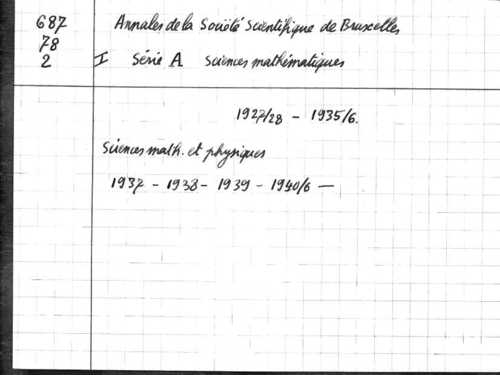 687 Annales de la Société Scientifique de Bruxelles
78
2 I Série A Sciences mathématiques
1927/28 - 1935/6.
Sciences math. et physiques
1937 - 1938 - 1939 - 1940/6 —